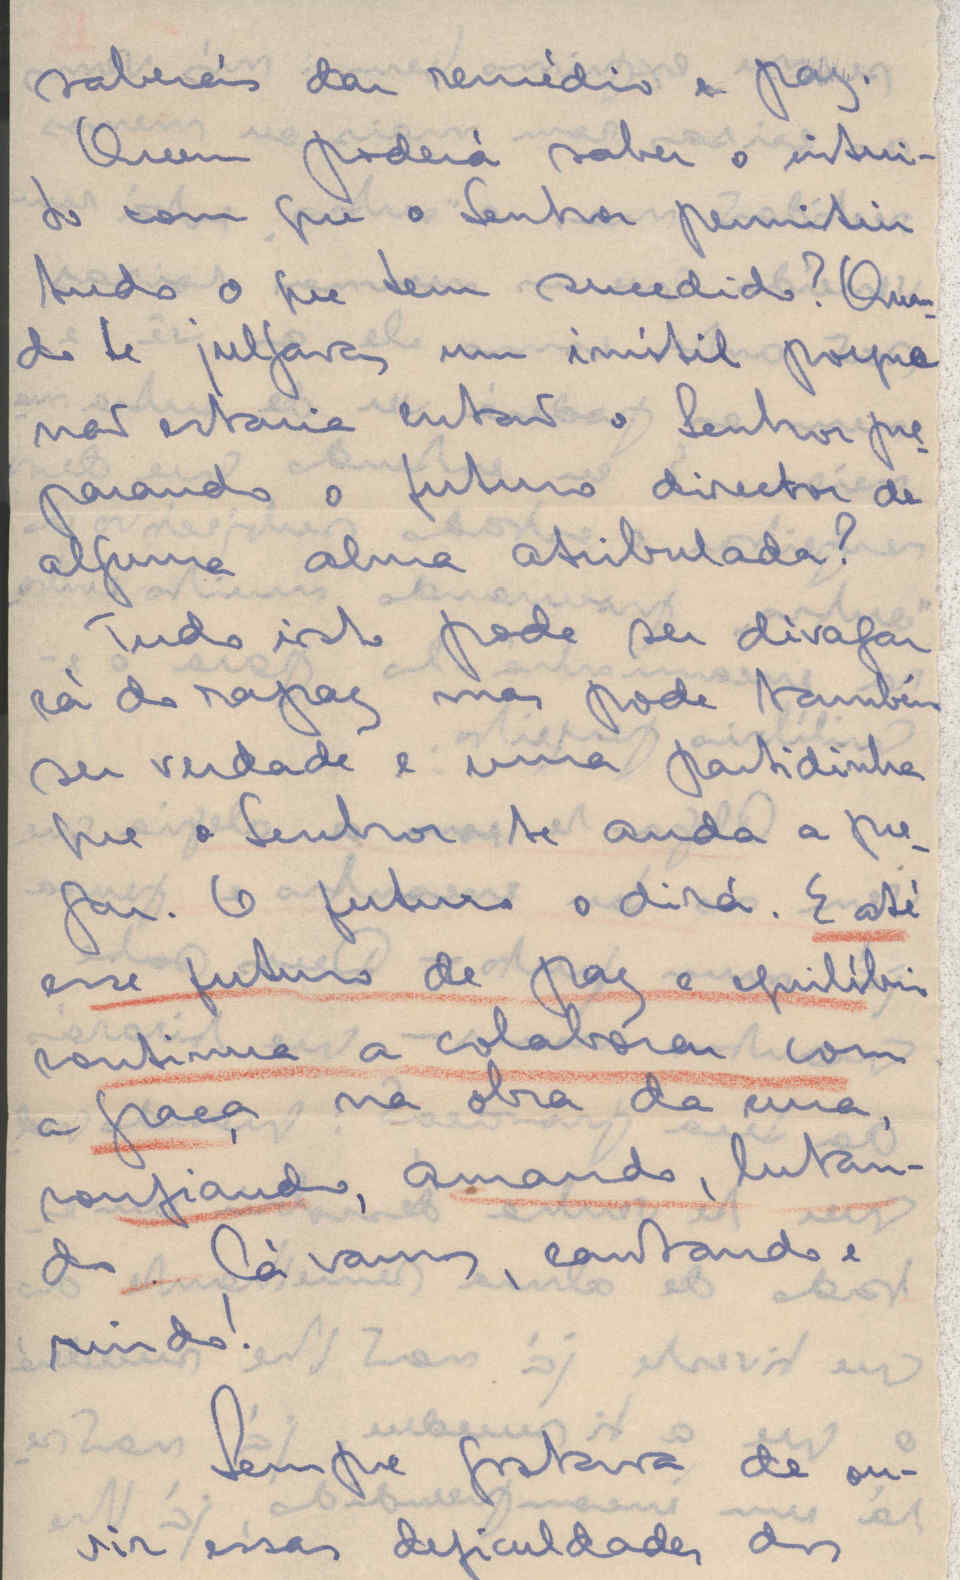 saberás dar remédio e paz.
Quem poderá saber o intui-
to com que o Senhor permitiu
tudo o que tem sucedido? Quan-
do te julgavas um inútil porque
não estaria então o Senhor pre-
parando o futuro director de
alguma alma atribulada?
Tudo isto pode ser divagar
cá do rapaz mas pode também
ser verdade e uma partidinha
que o Senhor te anda a pre-
gar. O futuro o dirá. E até
esse futuro de paz e equilíbrio
continua a colaborar com
a graça na obra da cura,
confiando, amando, lutan-
do. Cá vamos, cantando e
rindo!
Sempre gostava de ou-
vir essas deficuldades dos